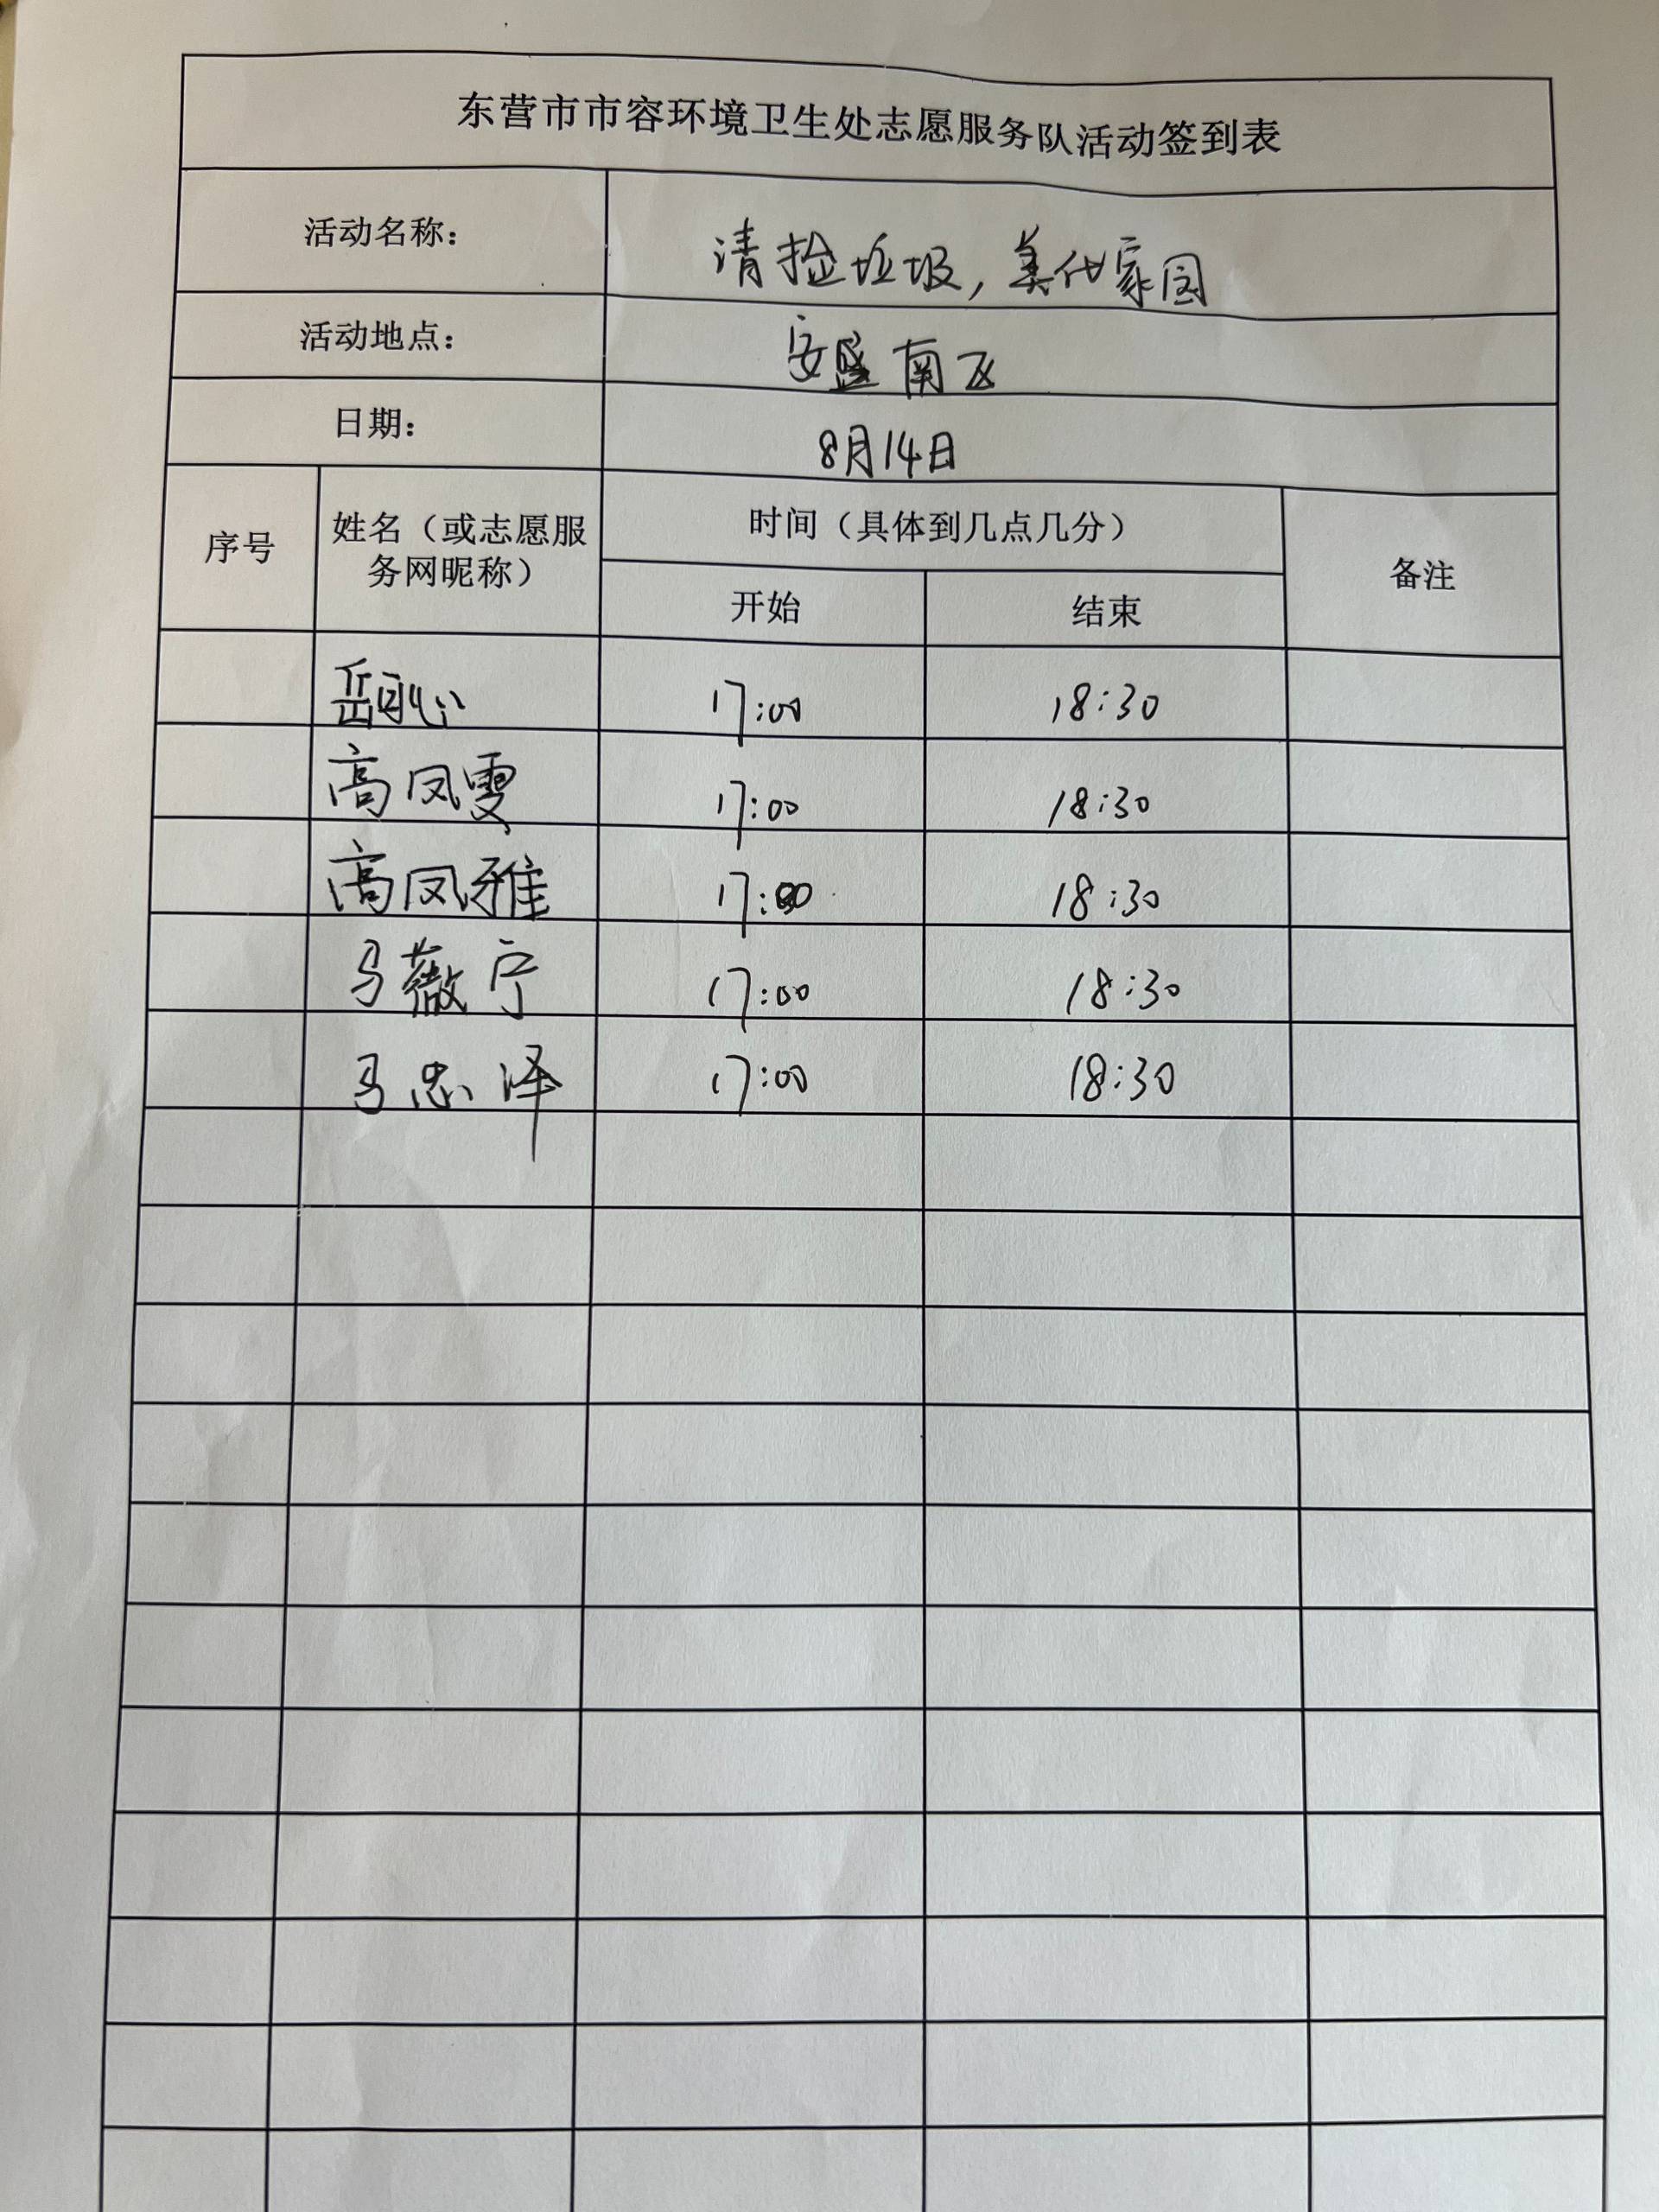 东营市市容环境卫生处志愿服务队活动签到表
活动名称： 清捡垃圾，美化家园
活动地点： 安盛南区
日期： 8月14日
序号 姓名（或志愿服务网昵称） 时间（具体到几点几分） 备注
开始 结束
岳 17:00 18:30
高凤雯 17:00 18:30
高凤雅 17:00 18:30
马薇宁 17:00 18:30
马忠泽 17:00 18:30